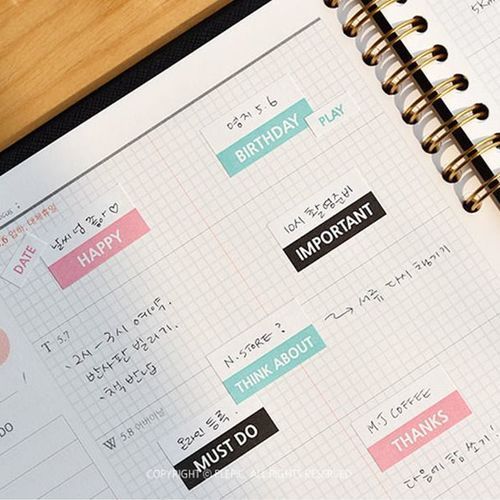 5km
명지 5.6
BIRTHDAY
PLAY
5.6 임하, 대체휴일
DATE
날씨 넘 좋아♡
HAPPY
10시 촬영준비
IMPORTANT
→ 서류 다시 챙기기
T 5.7
、2시-3시 예약.
반사판 빌리기.
、책 반납
N.STORE?
THINK ABOUT
DO
W 5.8 어버이날
온라인 등록.
MUST DO
M.J COFFEE
THANKS
다음에 함 쏘기!
COPYRIGHT © PLEPIC. ALL RIGHTS RESERVED